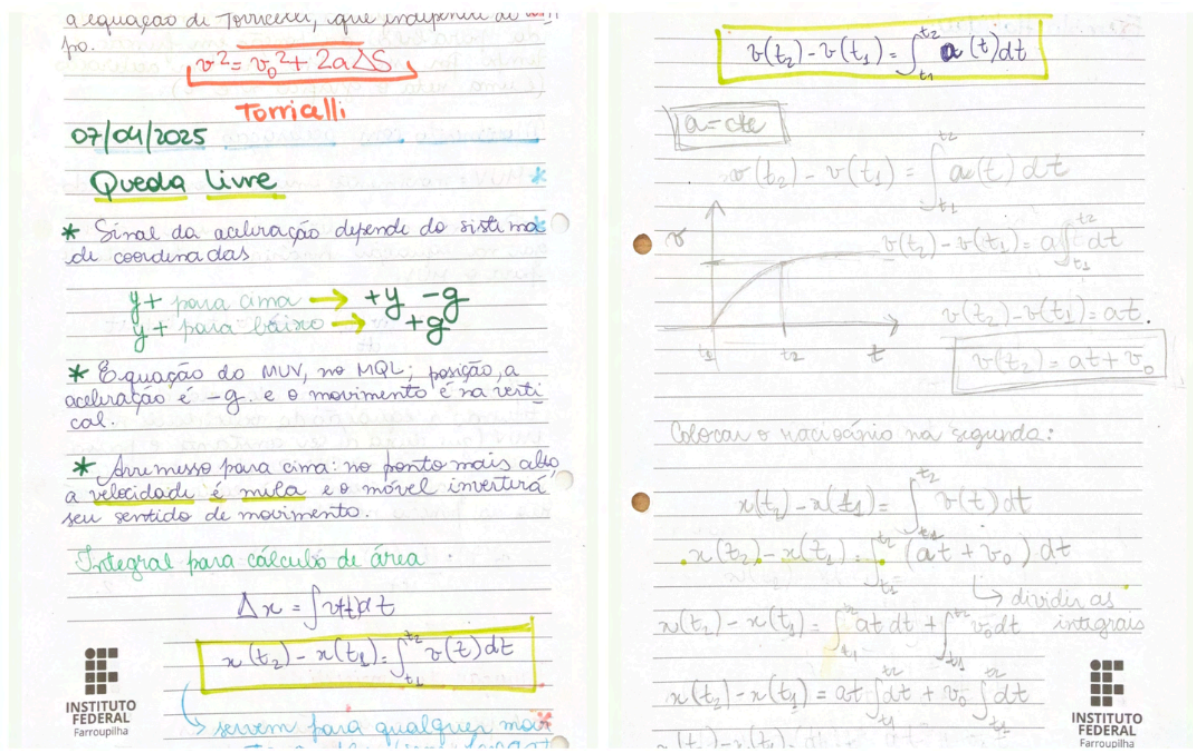 a equação de Torricelli, que independe de tem-
po.
v² = v₀² + 2aΔS
Torricelli
07/04/2025
Queda Livre
* Sinal da aceleração depende do sistema
de coordenadas
y+ para cima → +y -g
y+ para baixo → +g
* Equação do MUV, no MQL; posição, a
aceleração é -g. e o movimento é na verti
cal.
* Arremesso para cima: no ponto mais alto,
a velocidade é nula e o móvel inverterá
seu sentido de movimento.
Integral para cálculo de área
Δx = ∫v(t)dt
x(t₂) - x(t₁) = ∫t₁^t₂ v(t)dt
→ servem para qualquer mov
INSTITUTO
FEDERAL
Farroupilha
v(t₂) - v(t₁) = ∫t₁^t₂ a(t)dt
a = cte
v(t₂) - v(t₁) = ∫t₁^t₂ a(t) dt
v
v(t₂) - v(t₁) = a∫t₁^t₂ dt
v(t₂) - v(t₁) = at.
t₁ t₂ t
v(t₂) = at + v₀
Colocar o raciocínio na segunda:
x(t₂) - x(t₁) = ∫t₁^t₂ v(t) dt
x(t₂) - x(t₁) = ∫t₁^t₂ (at + v₀) dt
→ dividir as
integrais
x(t₂) - x(t₁) = ∫t₁^t₂ at dt + ∫t₁^t₂ v₀dt
x(t₂) - x(t₁) = at ∫t₁^t₂ dt + v₀ ∫t₁^t₂ dt
INSTITUTO
FEDERAL
Farroupilha